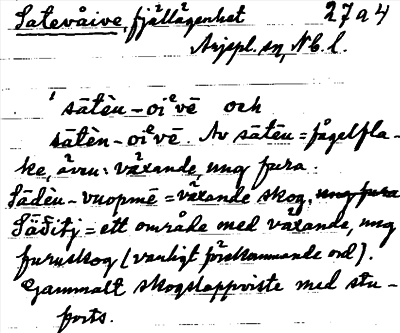 Satevåive, fjällägenhet 27a4
Arjepl. sn, Nb. l.
' sātèu-oiᵉvē och
sātèn-oiᵉvē. Av sātèu = fågelfla-
ke, även: växande, ung fura.
Sādèu-vuopmē = växande skog, ung fura
= ett område med växande, ung
furuskog (vanligt förekommande ord).
Gammalt skogslappviste med stu-
forts.